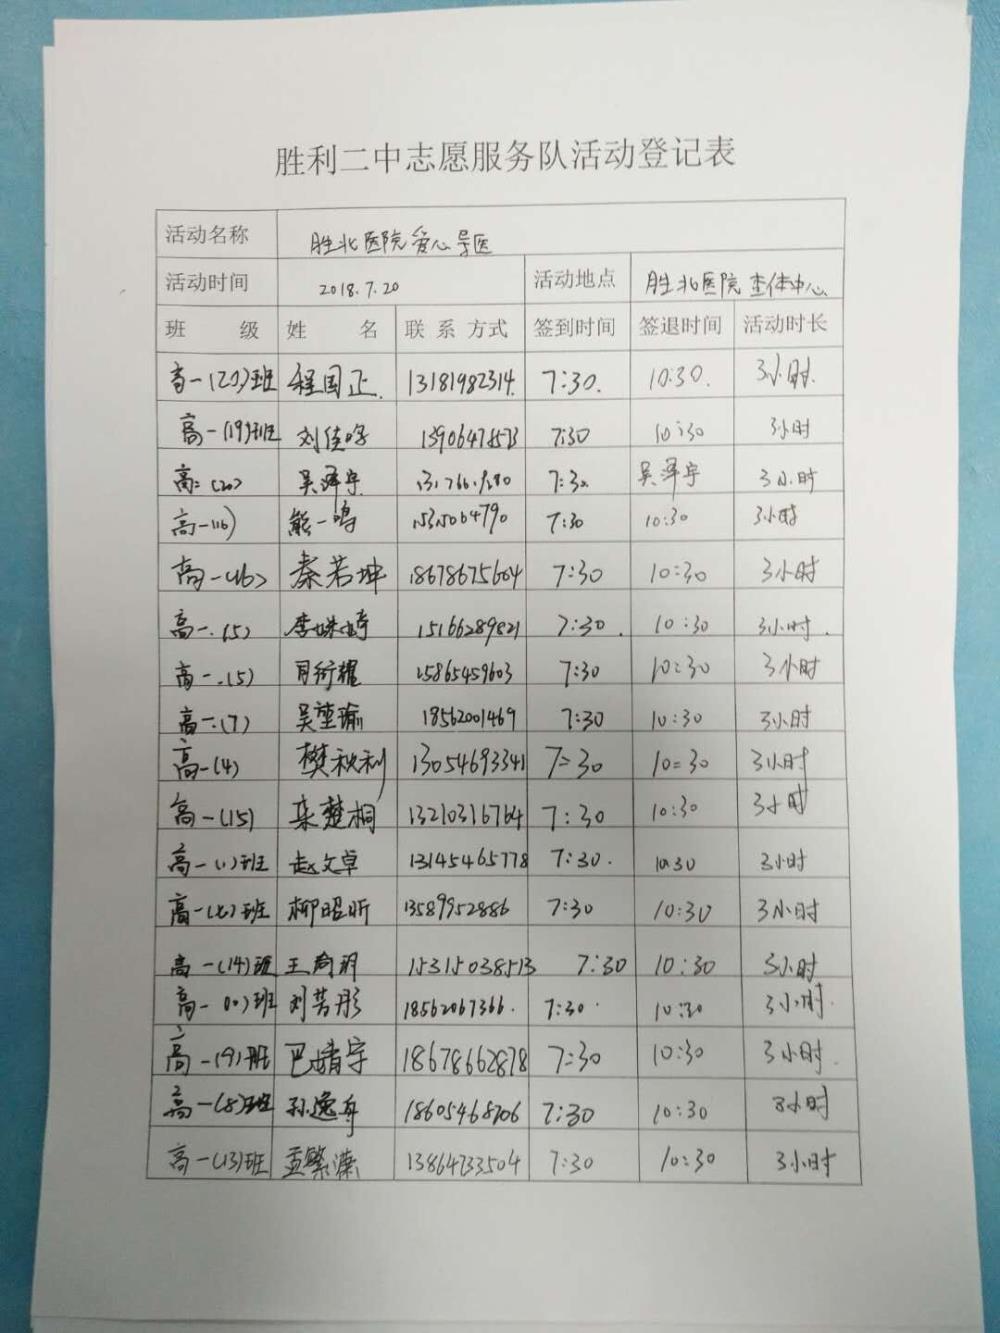 胜利二中志愿服务队活动登记表
活动名称 胜北医院爱心导医
活动时间 2018.7.20 活动地点 胜北医院查体中心
班 级 姓 名 联 系 方式 签到时间 签退时间 活动时长
高一(20)班 程国正 13181982314 7:30 10:30 3小时
高一(19)班 刘佳 7:30 10:30 3小时
高二(20) 吴泽宇 7:30 吴泽宇 3小时
高一(16) 熊一鸣 7:30 10:30 3小时
高一(16) 秦若坤 18678675604 7:30 10:30 3小时
高一.(5) 李姝琦 15166289821 7:30 10:30 3小时
高一.(5) 15865459603 7:30 10:30 3小时
高一.(7) 吴堃瑜 18562001469 7:30 10:30 3小时
高一(4) 樊秋利 13054693341 7:30 10:30 3小时
高一(15) 栾楚桐 13210316764 7:30 10:30 3小时
高一(1)班 赵文卓 13145465778 7:30 10:30 3小时
高一(七)班 柳昭昕 13589952886 7:30 10:30 3小时
高一(14)班 15315038513 7:30 10:30 3小时
高一(10)班 刘芳彤 18562067366 7:30 10:30 3小时
高一(9)班 巴婧宇 18678662878 7:30 10:30 3小时
高一(8)班 孙逸舟 18605468706 7:30 10:30 3小时
高一(13)班 孟繁潆 13864733504 7:30 10:30 3小时